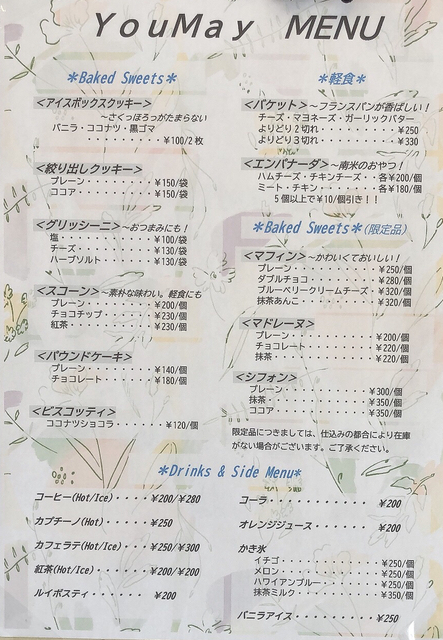 YouMay MENU
*Baked Sweets*
<アイスボックスクッキー>
~さくっほろっがたまらない
バニラ・ココナツ・黒ゴマ
‥‥‥‥‥‥‥‥¥100/2枚
<絞り出しクッキー>
プレーン‥‥‥‥‥¥150/袋
ココア‥‥‥‥‥‥¥150/袋
<グリッシーニ>~おつまみにも!
塩‥‥‥‥‥‥‥‥¥100/袋
チーズ‥‥‥‥‥‥¥130/袋
ハーブソルト‥‥‥¥130/袋
<スコーン>~素朴な味わい。軽食にも
プレーン‥‥‥‥‥¥200/個
チョコチップ‥‥‥¥230/個
紅茶‥‥‥‥‥‥‥¥230/個
<パウンドケーキ>
プレーン‥‥‥‥‥¥140/個
チョコレート‥‥‥¥180/個
<ビスコッティ>
ココナツショコラ‥‥‥‥¥120/個
*軽食*
<バケット>~フランスパンが香ばしい!
チーズ・マヨネーズ・ガーリックバター
よりどり2切れ‥‥‥‥‥¥250
よりどり3切れ‥‥‥‥‥¥330
<エンパナーダ>~南米のおやつ!
ハムチーズ・チキンチーズ‥各¥200/個
ミート・チキン‥‥‥‥‥各¥180/個
5個以上で¥10/個引き!!
*Baked Sweets*(限定品)
<マフィン>~かわいくておいしい!
プレーン‥‥‥‥‥‥‥‥¥250/個
ダブルチョコ‥‥‥‥‥‥¥280/個
ブルーベリークリームチーズ・¥320/個
抹茶あんこ‥‥‥‥‥‥‥¥320/個
<マドレーヌ>
プレーン‥‥‥‥‥‥‥¥200/個
チョコレート‥‥‥‥‥¥220/個
抹茶‥‥‥‥‥‥‥‥‥¥220/個
<シフォン>
プレーン‥‥‥‥‥‥‥¥300/個
抹茶‥‥‥‥‥‥‥‥‥¥350/個
ココア‥‥‥‥‥‥‥‥¥350/個
限定品につきましては、仕込みの都合により在庫
がない場合がございます。ご了承ください。
*Drinks & Side Menu*
コーヒー(Hot/Ice)‥‥‥¥200/¥280
カプチーノ(Hot)‥‥‥‥¥250
カフェラテ(Hot/Ice)‥‥¥250/¥300
紅茶(Hot/Ice)‥‥‥‥‥¥200/¥200
ルイボスティ‥‥‥‥‥¥200
コーラ‥‥‥‥‥‥‥‥¥200
オレンジジュース‥‥‥‥¥200
かき氷
イチゴ‥‥‥‥‥‥‥‥¥250/個
メロン‥‥‥‥‥‥‥‥¥250/個
ハワイアンブルー‥‥‥¥250/個
抹茶ミルク‥‥‥‥‥‥¥350/個
バニラアイス‥‥‥‥‥‥¥250